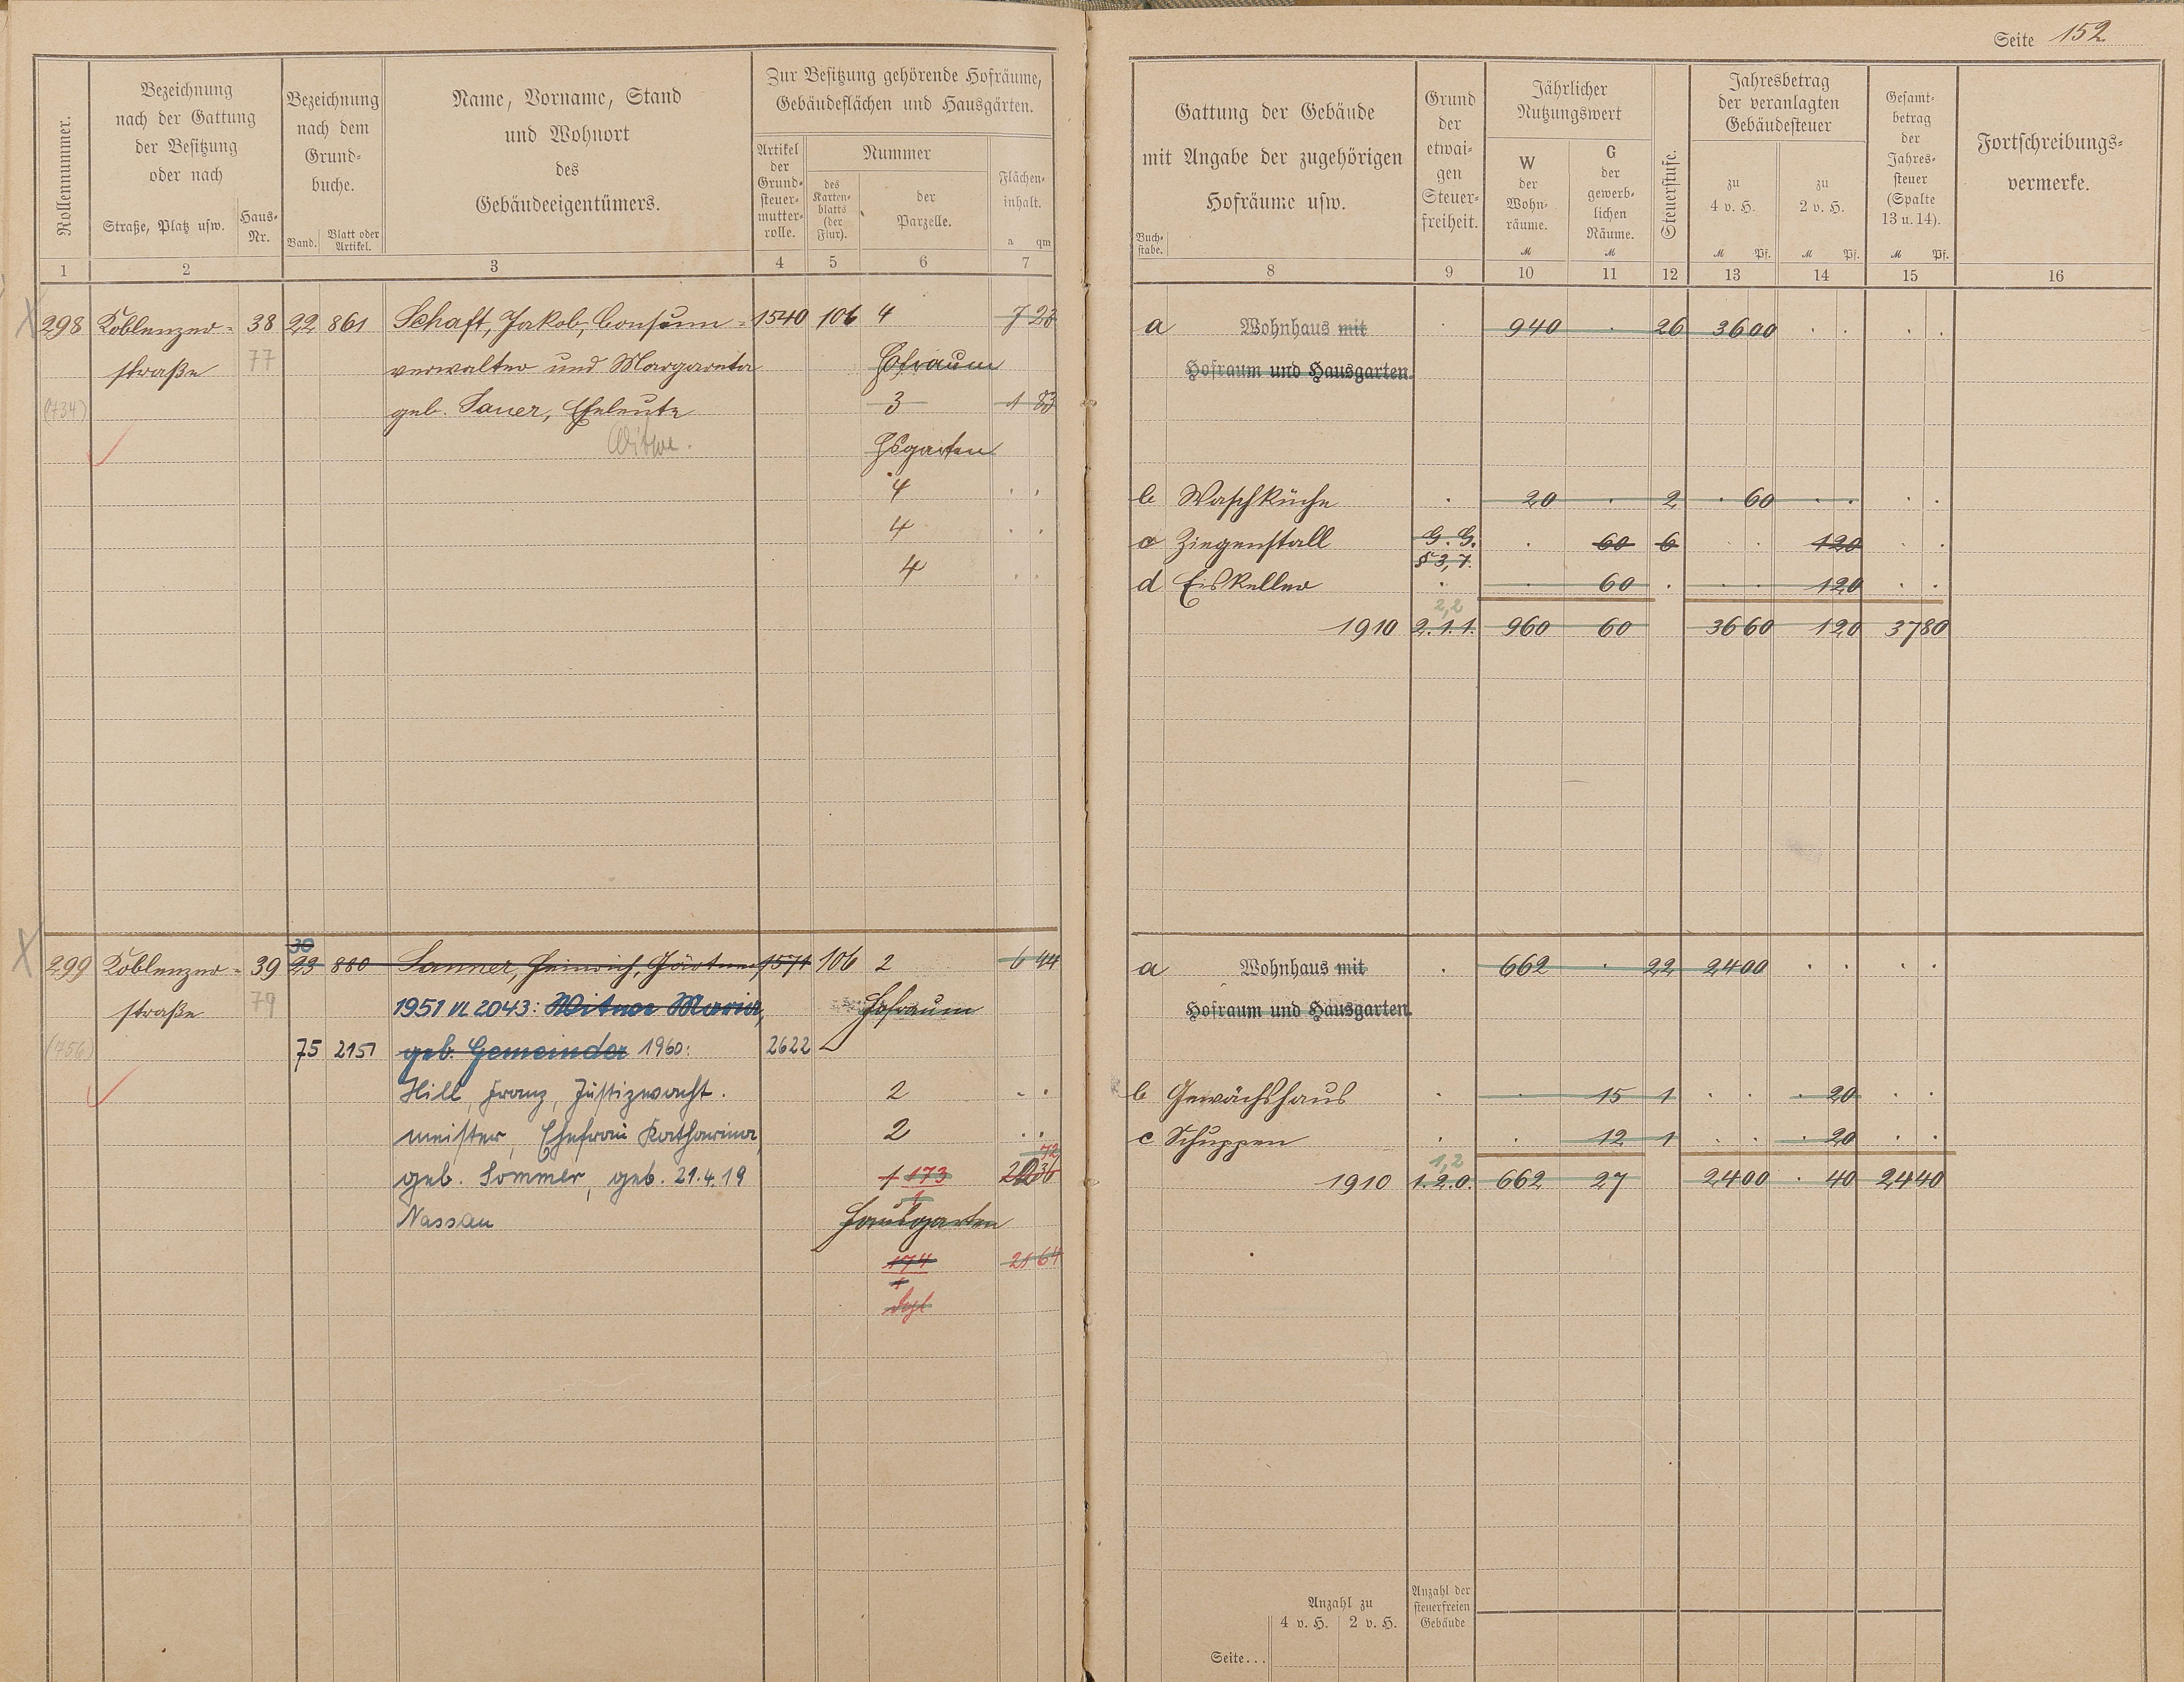 Seite 152
Rollennummer.
Bezeichnung
nach der Gattung
der Besitzung
oder nach
Straße, Platz usw.
Haus-
Nr.
Bezeichnung
nach dem
Grund-
buche.
Band.
Blatt oder
Artikel.
Name, Vorname, Stand
und Wohnort
des
Gebäudeeigentümers.
Zur Besitzung gehörende Hofräume,
Gebäudeflächen und Hausgärten.
Artikel
der
Grund-
steuer-
mutter-
rolle.
Nummer
des
Karten-
blatts
(der
Flur).
der
Parzelle.
Flächen-
inhalt.
a qm
1 2 3 4 5 6 7
298 Koblenzer- 38 22 861 Schaft, Jakob, Consum- 1540 106 4 7 23
straße 77 verwalter und Margareta Hofraum
(734) geb. Sauer, Eheleute 3 1 83
Witwe. Hsgarten
4 . .
4 . .
4 . .
30
299 Koblenzer- 39 23 880 Sanner, Heinrich, Gärtner 1571 106 2 6 44
straße 79 1951 VL 2043: Witwe Maria, Hofraum
(756) 75 2151 geb. Gemeinder 1960: 2622
Hill, Franz, Justizwacht. 2 . .
meister, Ehefrau Katharina, 2 . .
geb. Sommer, geb. 21.4.19 1 173
1
Nassau Hausgarten
174 21 64
1
Gattung der Gebäude
mit Angabe der zugehörigen
Hofräume usw.
Buch-
stabe.
Grund
der
etwai-
gen
Steuer-
freiheit.
Jährlicher
Nutzungswert
W
der
Wohn-
räume.
M
G
der
gewerb-
lichen
Räume.
M
Steuerstufe.
Jahresbetrag
der veranlagten
Gebäudesteuer
zu
4 v. H.
M Pf.
zu
2 v. H.
M Pf.
Gesamt-
betrag
der
Jahres-
steuer
(Spalte
13 u. 14).
M Pf.
Fortschreibungs-
vermerke.
8 9 10 11 12 13 14 15 16
a Wohnhaus mit . 940 . 26 36 00 . . . .
Hofraum und Hausgarten.
b Waschküche . 20 . 2 . 60 . . . .
c Ziegenstall G. G. . 60 6 . . 1 20 . .
§ 3, 7.
d Eiskeller . . 60 . . . 1 20 . .
2,2
1910 2.1.1. 960 60 36 60 1 20 37 80
a Wohnhaus mit . 662 . 22 24 00 . . . .
Hofraum und Hausgarten.
b Gewächshaus . . 15 1 . . . 20 . .
c Schuppen . . 12 1 . . . 20 . .
1,2
1910 1.2.0. 662 27 24 00 . 40 24 40
Anzahl zu
4 v. H. 2 v. H.
Anzahl der
steuerfreien
Gebäude
Seite...